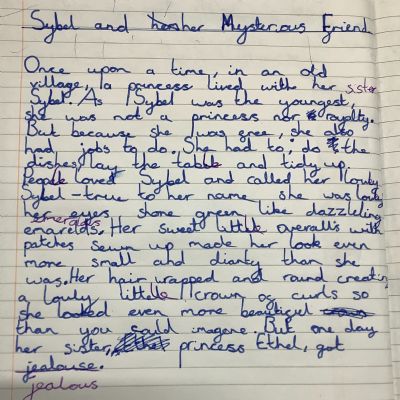 Sybel and her Mysterious Friend
Once upon a time, in an old
village, a princess lived with her sister
Sybel. As Sybel was the youngest,
she was not a princess nor royalty.
But because she was free, she also
had jobs to do. She had to: do the
dishes, lay the table and tidy up.
People loved Sybel and called her Lovely
Sybel - true to her name she was lovely
her eyes shone green like dazzleling
emeralds
emarelds. Her sweet little overall's with
patches sewn up made her look even
more small and dianty than she
was. Her hair wrapped and round creating
a lovly little crown of curls so
she looked even more beautiful
than you could imagene. But one day
her sister, princess Ethel, got
jealouse.
jealous